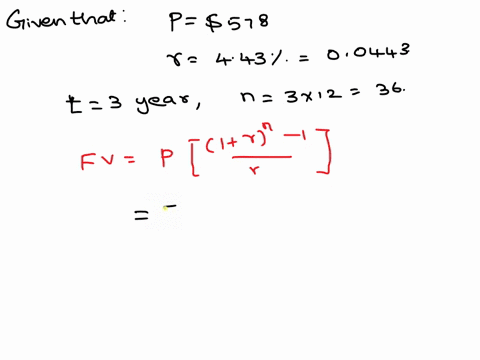 Given that: P = $578
r = 4.43% = 0.0443
t = 3 year, n = 3x12 = 36.
FV = P [ (1+r)^n - 1 / r ]
=